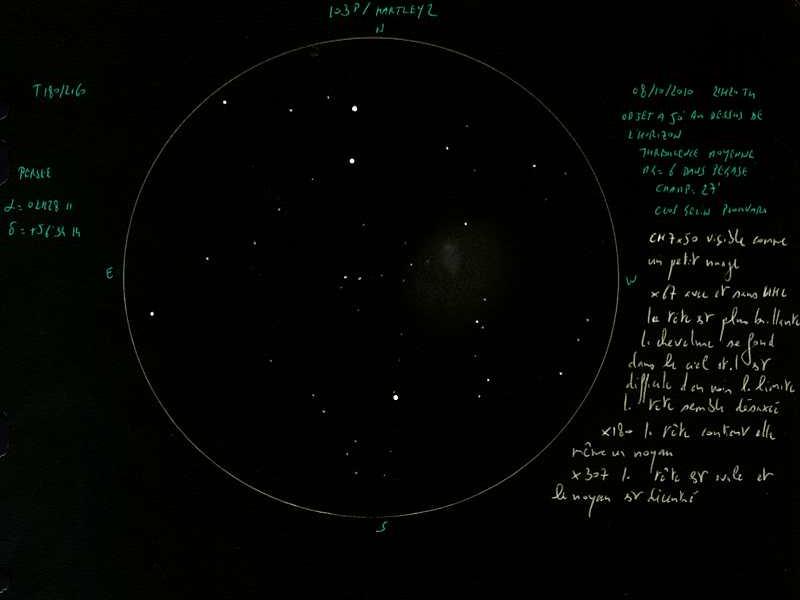 103P/HARTLEY2
N
T180/2160
PERSEE
α = 02H28 11
δ = +56°34 14
E
W
S
08/10/2010 21H20 TU
OBJET A 50° AU DESSUS DE
L'HORIZON
TURBULENCE MOYENNE
M = 6 DANS PEGASE
CHAMP : 27'
CLOS
CH7x50 visible comme
un petit nuage
x67 avec et sans UHC
la tête est plus brillante
la chevelure se fond
dans le ciel et il est
difficile d'en voir la limite
la tête semble désaxée
x180 la tête contient elle
même un noyau
x307 la tête est ovale et
le noyau est décentré